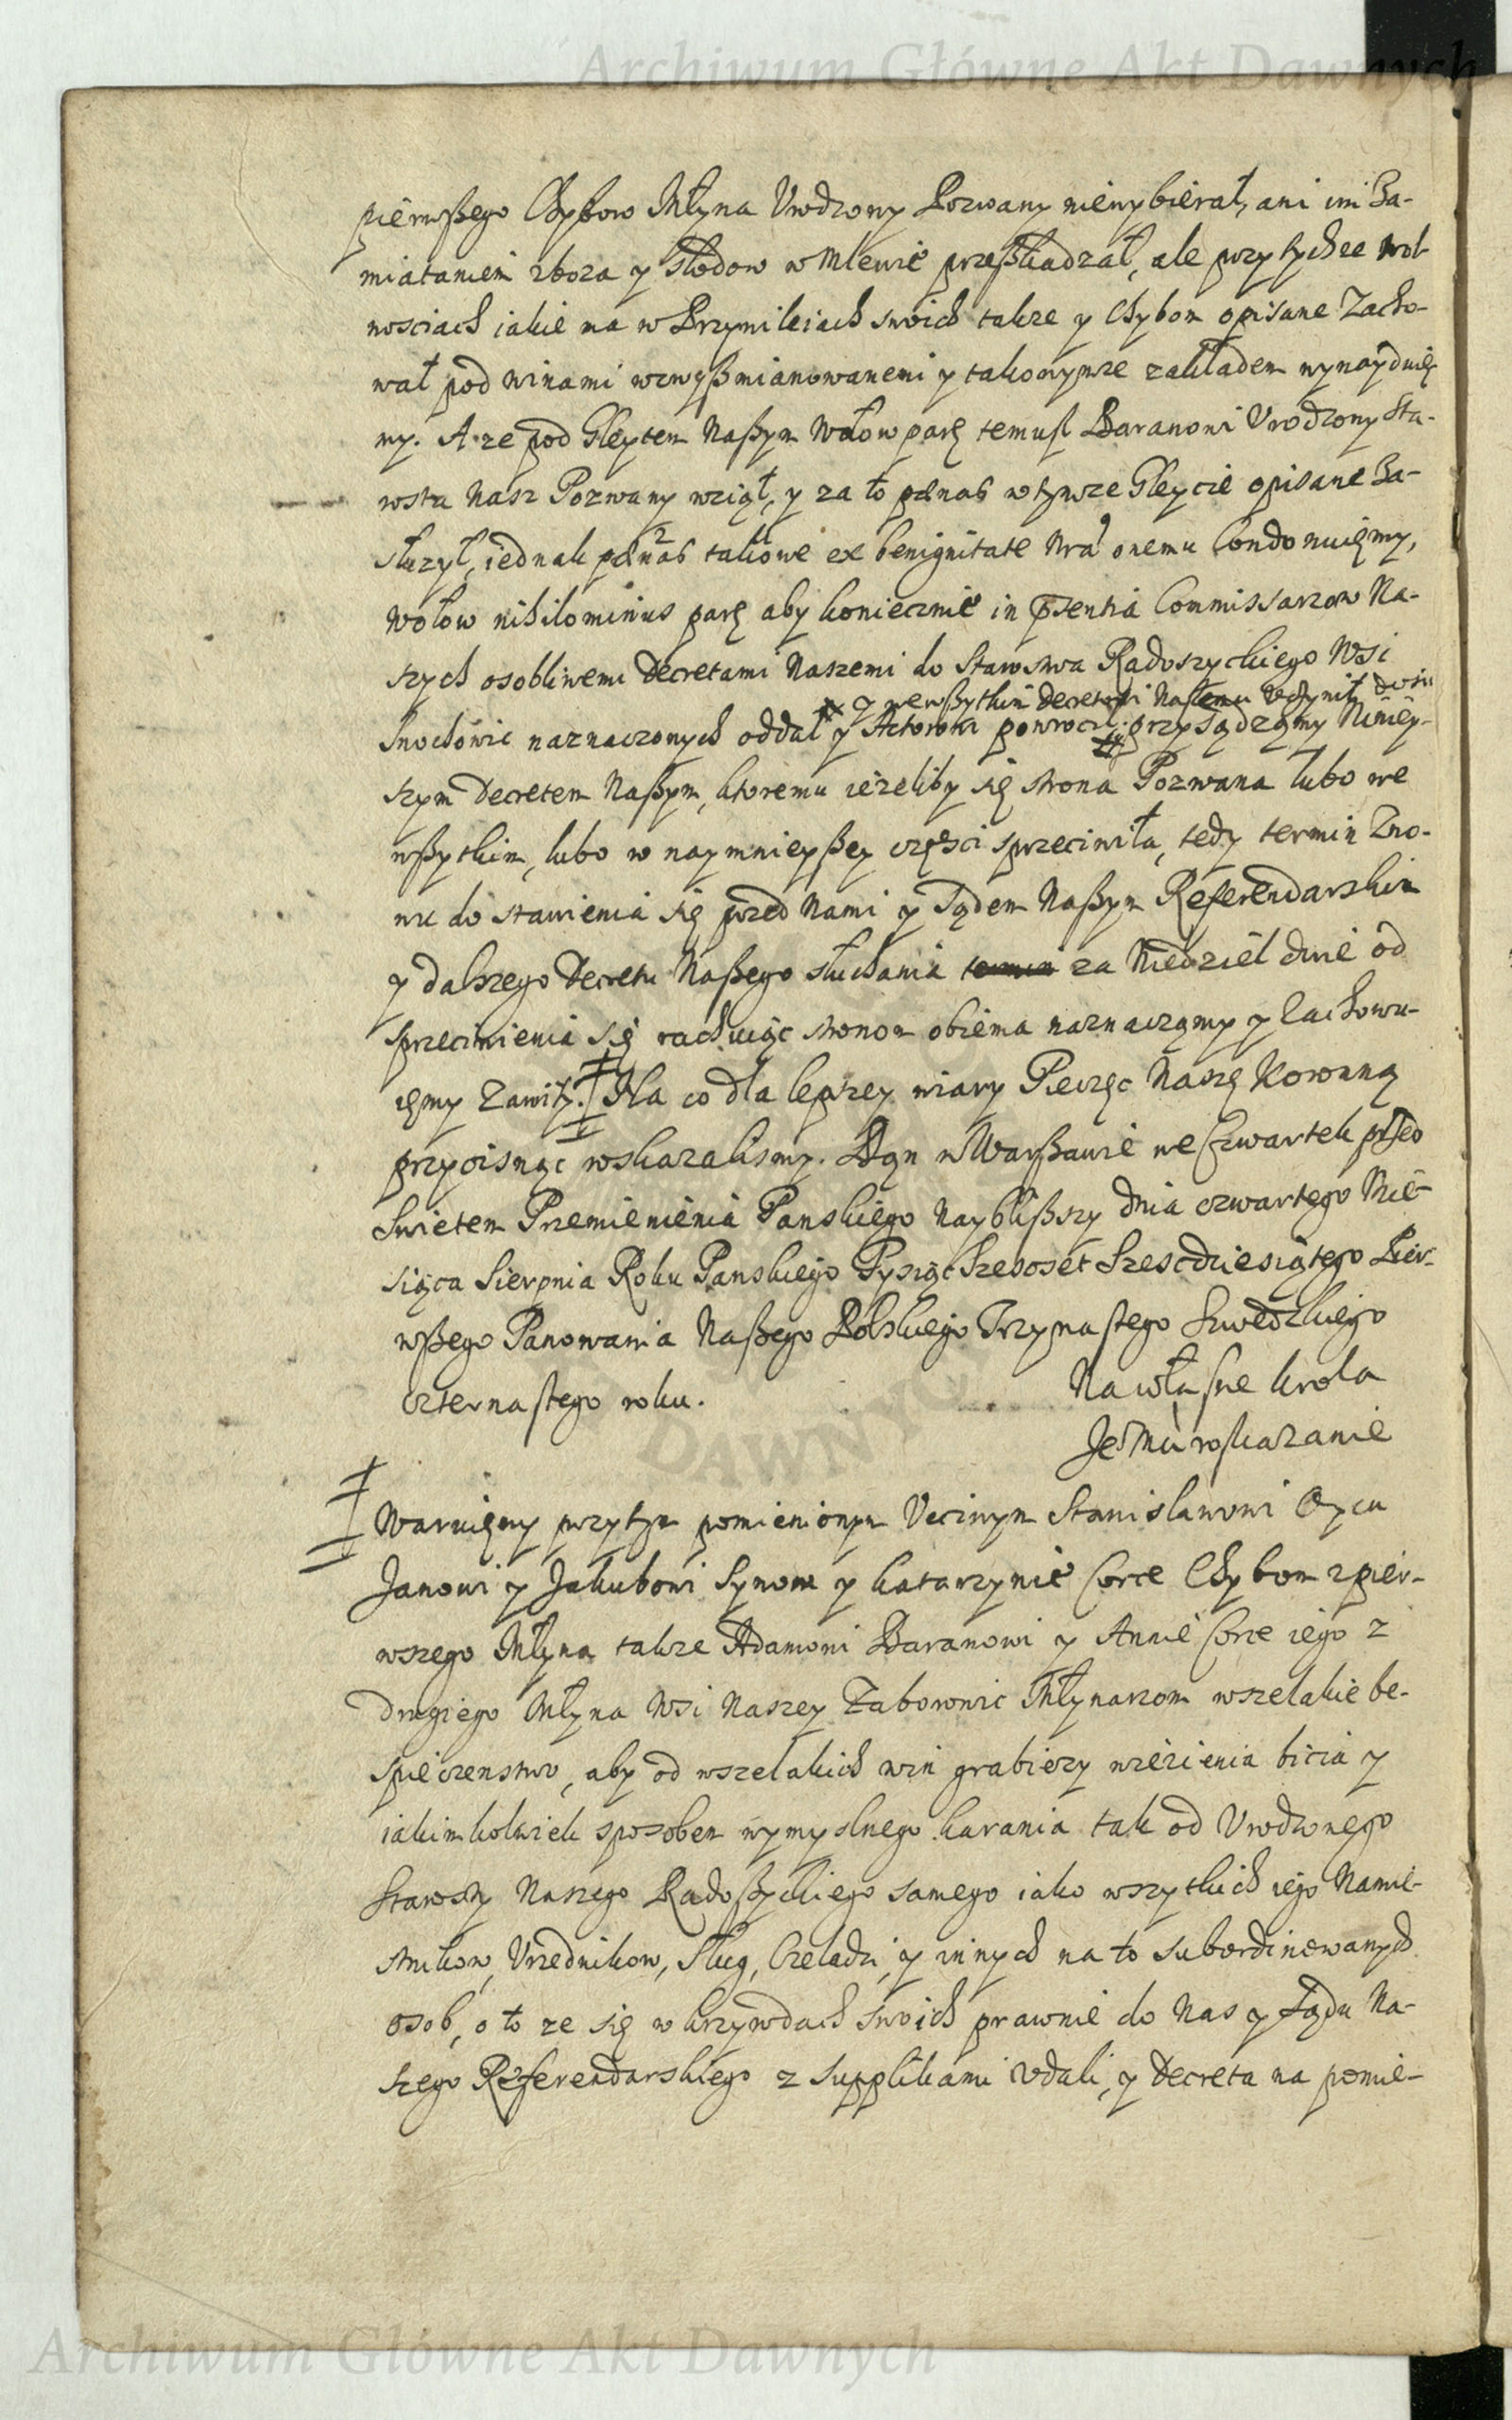 Archiwum Główne Akt Dawnych
pierwßego Chybow Młyna Vrodzony Pozwany niewybierał, ani im Za-
miataniem zboza y słodow w Mlewie przeßkadzał, ale przy tychze wol-
nosciach iakie ma w Przywileiach swoich takze y Chybom opisane Zacho-
wał pod winami wzwyßmianowanemi y takowymze zakładem wynayduię-
my. A ze pod Gleytem Naßym Wołow parę temusz Baranowi Vrodzony Sta-
rosta Nasz Pozwany wziął, y za to pænas w tymze Gleycie opisane Za-
słuzył, iednak pænas takowe ex benignitate Nrã onemu Condonuięmy,
Wołow nihilominus parę aby koniecznie in pñsentia Commissarzow Na-
szych osobliwemi Decretami Naszemi do Starostwa Radoszyckiego Wsi
y we wßytkim Decretowi Naßemu Vczynił dosic
Snochowic naznaczonych oddał y Actorowi powrocił przysądzamy Nïniey-
szym Decretem Naßym, ktoremu iezeliby się strona Pozwana lubo we
wßytkim, lubo w naymnieyßey częsci sprzeciwiła, tedy termin Zno-
wu do stawienia się przed Nami y Sądem Naßym Referendarskim
y dalszego Decretu Naßego słuchania za Niedziel dwie od
sprzeciwienia się rachuiąc stronom obiema naznaczamy y Zachowu-
ięmy Zawity. Na co dla lepszey wiary Pieczęc Naszę Koronną
przycisnąc wskazalismy. Dan w Warßawie we Czwartek przed
Swietem Przemienienia Panskiego Nayblißszy dnia czwartego Mie-
siąca Sierpnia Roku Panskiego Tysiąc Szescset Szescdziesiątego Pier-
wßego Panowania Naßego Polskiego Trzynastego Szwedzkiego
czternastego roku.
Na własne krola
Je⁰ Mci roskazanie
Waruięmy przytym pomienionym Vcciwym Stanisławowi Oycu
Janowi y Jakubowi Synom y Katarzynie Corce Chybom z pier-
wszego Młyna takze Adamowi Baranowi y Annie Corce iego z
drugiego Młyna Wsi Naszey Zaborowic Młynarzom wszelakie be-
spieczenstwo, aby od wszelakich win grabiezy więzienia bicia y
iakimkolwiek sposobem wymyslnego karania tak od Vrodzonego
Starosty Naszego Radoßyckiego samego iako wszytkich iego Namie-
stnikow, Vrzednikow, Sług, Czeladzi, y innych na to subordinowanych
osob, o to ze się w krzywdach swoich prawnie do Nas y Sądu Na-
szego Referendarskiego z supplikami vdali, y Decreta na pomie-
Archiwum Główne Akt Dawnych